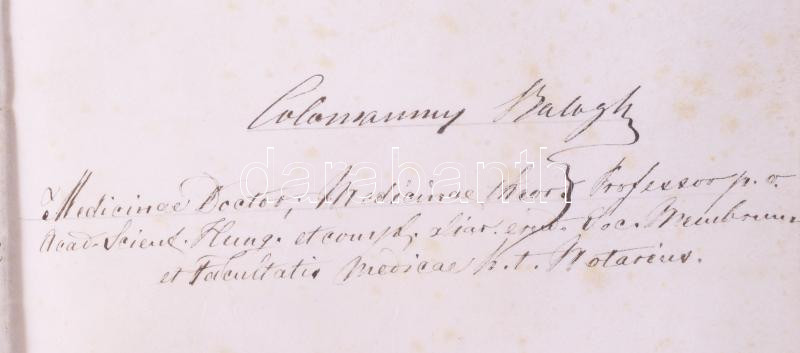 Colomannus Balogh
darabanth
Medicinae Doctor, Medicinae theor. Professor p. o.
Acad. Scient. Hung. et compl. aliar. erud. Soc. Membrum
et Facultatis Medicae h. t. Notarius.